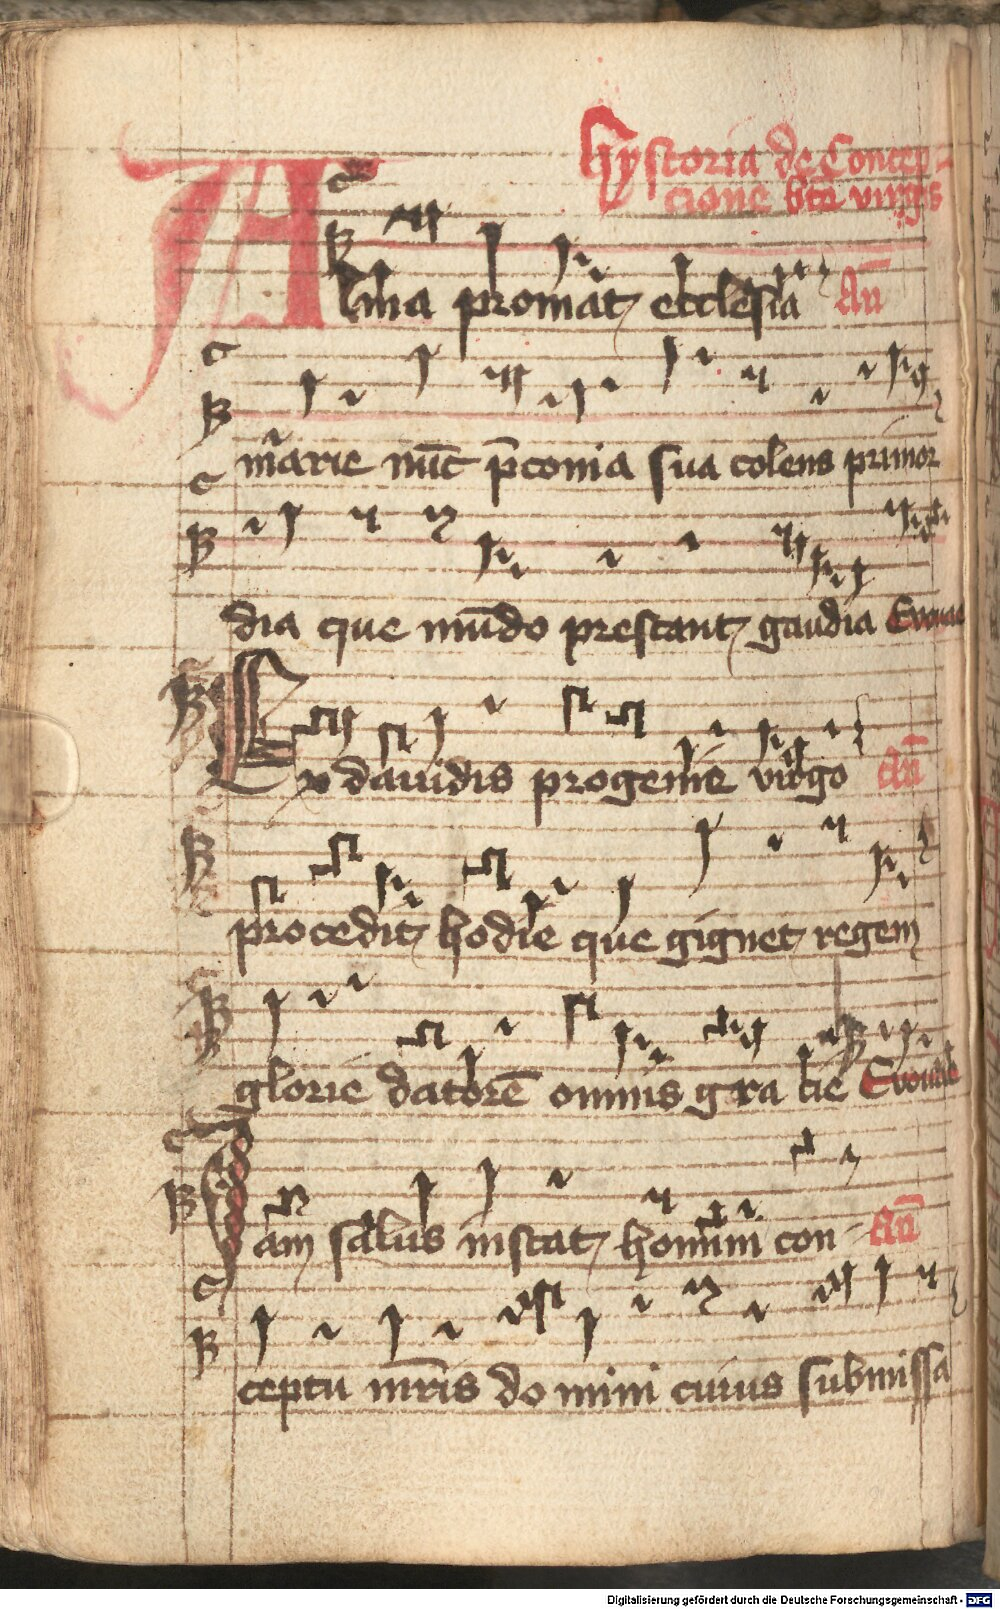 Hystoria de Concep-
cione bte virgīs
Alma promat ecclesia Añ
marie nūc p̄conia sua colens primor
dia que mūdo prestant gaudia Evovae
Ex dauidis progenie virgo Añ
procedit hodie que gignet regem
glorie datorē omnis gra tie Evovae
Iam salus instat homini con- Añ
ceptu mr̄is domini cuius submissa
Digitalisierung gefördert durch die Deutsche Forschungsgemeinschaft - DFG